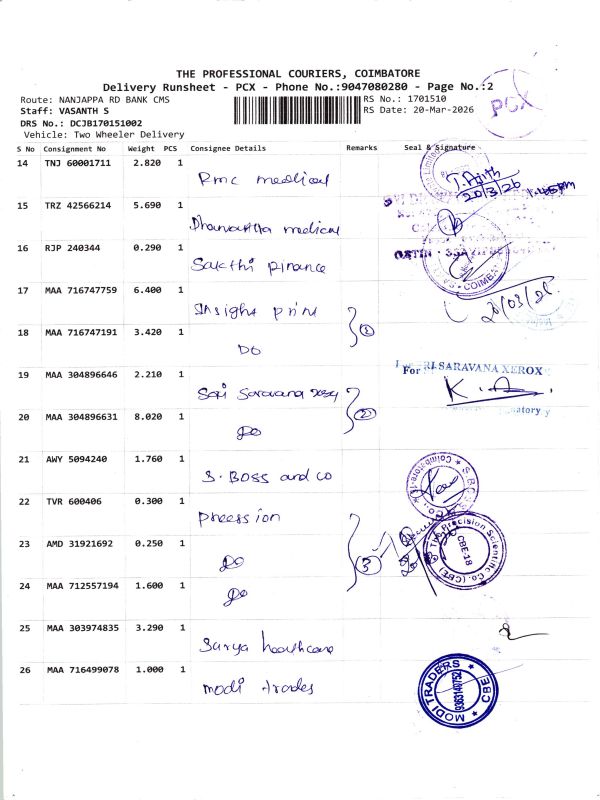 THE PROFESSIONAL COURIERS, COIMBATORE
Delivery Runsheet - PCX - Phone No.:9047080280 - Page No.:2
Route: NANJAPPA RD BANK CMS
RS No.: 1701510
Staff: VASANTH S
RS Date: 20-Mar-2026
DRS No.: DCJB170151002
Vehicle: Two Wheeler Delivery
PCX
S No Consignment No Weight PCS Consignee Details Remarks Seal & Signature
14 TNJ 60001711 2.820 1 Pmc medical
20/3/26
15 TRZ 42566214 5.690 1 medical
16 RJP 240344 0.290 1 Sakthi finance
COIMBA
17 MAA 716747759 6.400 1 Insight print
20/03/26
18 MAA 716747191 3.420 1 Do
1
19 MAA 304896646 2.210 1 Sri Saravana
For SRI SARAVANA XEROX
20 MAA 304896631 8.020 1 Do
2
21 AWY 5094240 1.760 1 S. BOSS and co
22 TVR 600406 0.300 1
23 AMD 31921692 0.250 1 Do
3
The Precision Scientific Co. (CBE)
CBE-18
24 MAA 712557194 1.600 1 Do
25 MAA 303974835 3.290 1 Surya healthcare
26 MAA 716499078 1.000 1 modi trades
MODI TRADERS
9363149752
CBE